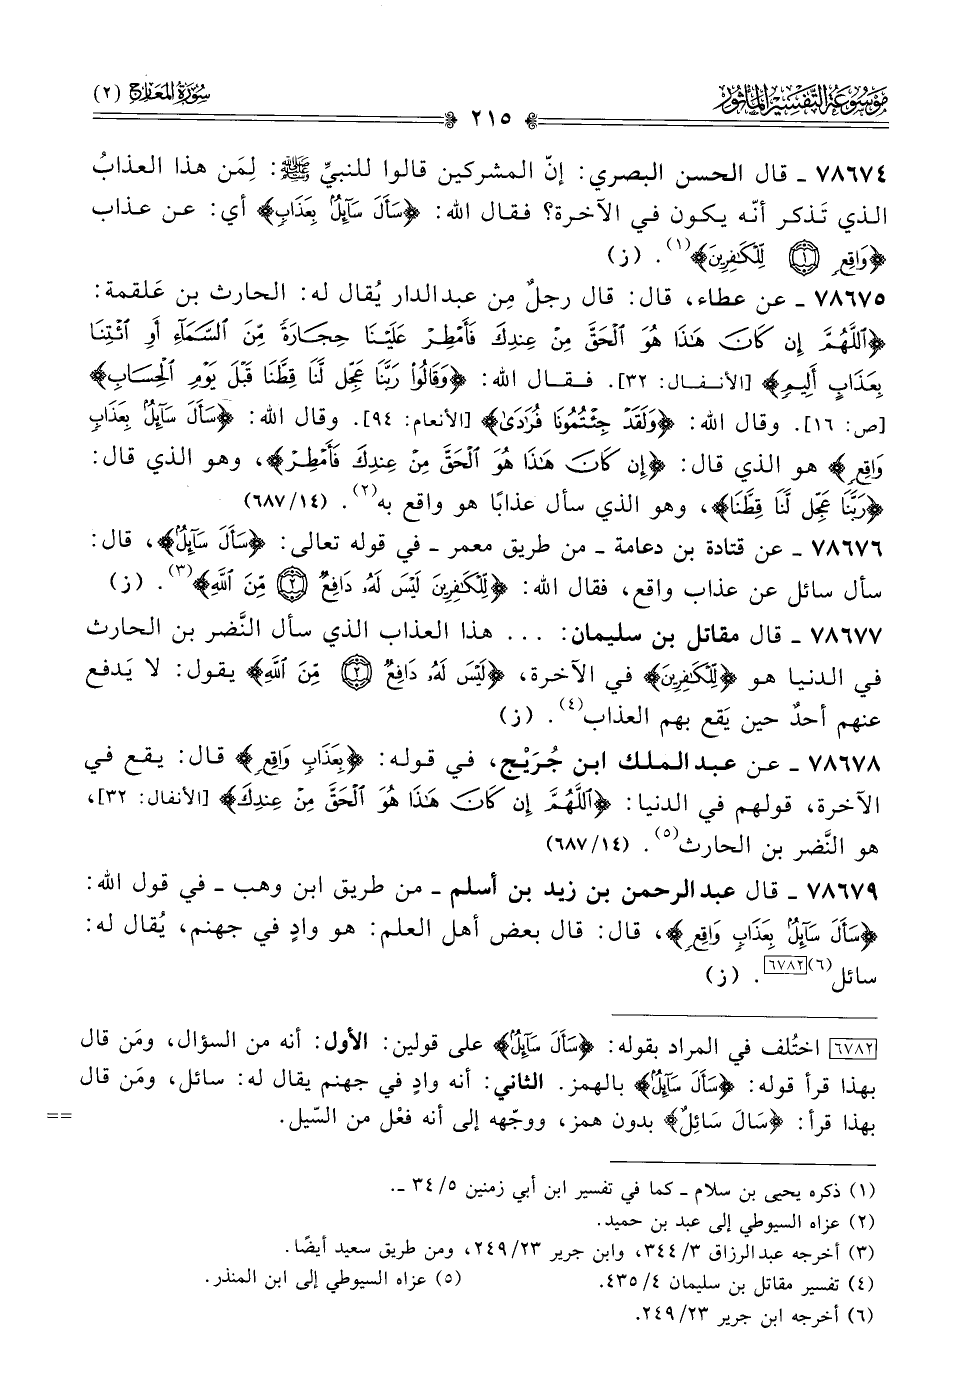 موسوعة التفسير المأثور
٢١٥
سورة المعارج (٢)
٧٨٦٧٤ ـ قال الحسن البصري: إنّ المشركين قالوا للنبيِّ ﷺ: لِمَن هذا العذابُ
الذي تَذكر أنّه يكون في الآخرة؟ فقال الله: ﴿سَأَلَ سَآئِلُۢ بِعَذَابٖ﴾ أي: عن عذاب
﴿وَاقِعٖ ۝١ لِّلۡكَٰفِرِينَ﴾(١). (ز)
٧٨٦٧٥ ـ عن عطاء، قال: قال رجلٌ مِن عبدالدار يُقال له: الحارث بن عَلقمة:
﴿ٱللَّهُمَّ إِن كَانَ هَٰذَا هُوَ ٱلۡحَقَّ مِنۡ عِندِكَ فَأَمۡطِرۡ عَلَيۡنَا حِجَارَةٗ مِّنَ ٱلسَّمَآءِ أَوِ ٱئۡتِنَا
بِعَذَابٍ أَلِيمٖ﴾ [الأنفال: ٣٢]. فقال الله: ﴿وَقَالُواْ رَبَّنَا عَجِّل لَّنَا قِطَّنَا قَبۡلَ يَوۡمِ ٱلۡحِسَابِ﴾
[ص: ١٦]. وقال الله: ﴿وَلَقَدۡ جِئۡتُمُونَا فُرَٰدَىٰ﴾ [الأنعام: ٩٤]. وقال الله: ﴿سَأَلَ سَآئِلُۢ بِعَذَابٖ
وَاقِعٖ﴾ هو الذي قال: ﴿إِن كَانَ هَٰذَا هُوَ ٱلۡحَقَّ مِنۡ عِندِكَ فَأَمۡطِرۡ﴾، وهو الذي قال:
﴿رَبَّنَا عَجِّل لَّنَا قِطَّنَا﴾، وهو الذي سأل عذابًا هو واقع به(٢). (٦٨٧/١٤)
٧٨٦٧٦ ـ عن قتادة بن دعامة ـ من طريق معمر ـ في قوله تعالى: ﴿سَأَلَ سَآئِلُۢ﴾، قال:
سأل سائل عن عذاب واقع، فقال الله: ﴿لِّلۡكَٰفِرِينَ لَيۡسَ لَهُۥ دَافِعٞ ۝٢ مِّنَ ٱللَّهِ﴾(٣). (ز)
٧٨٦٧٧ ـ قال مقاتل بن سليمان: ... هذا العذاب الذي سأل النَّضر بن الحارث
في الدنيا هو ﴿لِّلۡكَٰفِرِينَ﴾ في الآخرة، ﴿لَيۡسَ لَهُۥ دَافِعٞ ۝٢ مِّنَ ٱللَّهِ﴾ يقول: لا يَدفع
عنهم أحدٌ حين يَقع بهم العذاب(٤). (ز)
٧٨٦٧٨ ـ عن عبدالملك ابن جُرَيْج، في قوله: ﴿بِعَذَابٖ وَاقِعٖ﴾ قال: يقع في
الآخرة، قولهم في الدنيا: ﴿ٱللَّهُمَّ إِن كَانَ هَٰذَا هُوَ ٱلۡحَقَّ مِنۡ عِندِكَ﴾ [الأنفال: ٣٢]،
هو النَّضر بن الحارث(٥). (٦٨٧/١٤)
٧٨٦٧٩ ـ قال عبدالرحمن بن زيد بن أسلم ـ من طريق ابن وهب ـ في قول الله:
﴿سَأَلَ سَآئِلُۢ بِعَذَابٖ وَاقِعٖ﴾، قال: قال بعض أهل العلم: هو وادٍ في جهنم، يُقال له:
سائل(٦)[٦٧٨٢]. (ز)
[٦٧٨٢] اختُلف في المراد بقوله: ﴿سَأَلَ سَآئِلُۢ﴾ على قولين: الأول: أنه من السؤال، ومَن قال
بهذا قرأ قوله: ﴿سَأَلَ سَآئِلُۢ﴾ بالهمز. الثاني: أنه وادٍ في جهنم يقال له: سائل، ومَن قال
بهذا قرأ: ﴿سَالَ سَائِلٌ﴾ بدون همز، ووجّهه إلى أنه فعْل من السّيل.
==
(١) ذكره يحيى بن سلام ـ كما في تفسير ابن أبي زمنين ٣٤/٥ ـ.
(٢) عزاه السيوطي إلى عبد بن حميد.
(٣) أخرجه عبدالرزاق ٣٤٤/٣، وابن جرير ٢٤٩/٢٣، ومن طريق سعيد أيضًا.
(٤) تفسير مقاتل بن سليمان ٤٣٥/٤. (٥) عزاه السيوطي إلى ابن المنذر.
(٦) أخرجه ابن جرير ٢٤٩/٢٣.